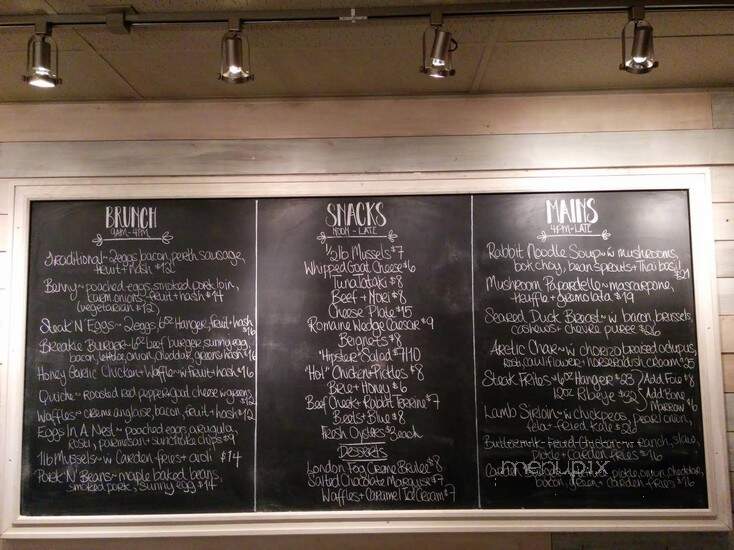 BRUNCH
9AM-4PM
Traditional ~ 2 eggs, bacon, perth sausage,
fruit + hash $12
Benny ~ poached eggs, smoked pork loin,
onions, fruit + hash $14
(vegetarian $12)
Steak N' Eggs ~ 2 eggs, 6oz Hanger, fruit + hash
$16
Breakie Burger ~ 6oz beef burger, sunny egg,
bacon, onion, cheddar, greens + hash $16
Honey Garlic Chicken + Waffle ~ w fruit + hash $16
Quiche ~ Roasted red pepper + goat cheese w greens
$12
Waffles ~ creme anglaise, bacon, fruit + hash $12
Eggs In A Nest ~ poached eggs, arugula,
rosti, parmesan + sunchoke chips $9
1lb Mussels ~ w Garden fries + aioli $14
Pork N' Beans ~ maple baked beans,
smoked pork, sunny egg $14
SNACKS
NOON - LATE
1/2 lb Mussels $7
Whipped Goat Cheese $6
Tuna Tataki $8
Beef + Nori $8
Cheese Plate $15
Romaine Wedge Caesar $9
Beignets $8
"Hipster" Salad $7/10
"Hot" Chicken + Pickles $8
Brie + Honey $6
Beef Cheek + Rabbit Terrine $7
Beets + Blue $8
Fresh Oysters $3 each
Desserts
London Fog Creme Brulee $8
Salted Chocolate Marquise $7
Waffles + Caramel Ice Cream $7
MAINS
4PM-LATE
Rabbit Noodle Soup ~ w mushrooms,
bok choy, bean sprouts + Thai basil
$21
Mushroom Papardelle ~ mascarpone,
truffle + gremolata $19
Seared Duck Breast ~ w bacon, brussels,
cashews + chevre puree $26
Arctic Char ~ w chorizo braised octopus,
cauliflower + horseradish cream $25
Steak Frites ~ 6oz Hanger $23
12oz Ribeye $32
Add Foie $8
Add Bone
Marrow $6
Lamb Sirloin ~ w chickpeas, pearl onion,
feta + fried kale $26
Buttermilk Fried Chicken ~ w ranch, slaw,
pickle + Garden fries $16
pickle, onion, cheddar,
bacon, green + Garden fries $16
menupix